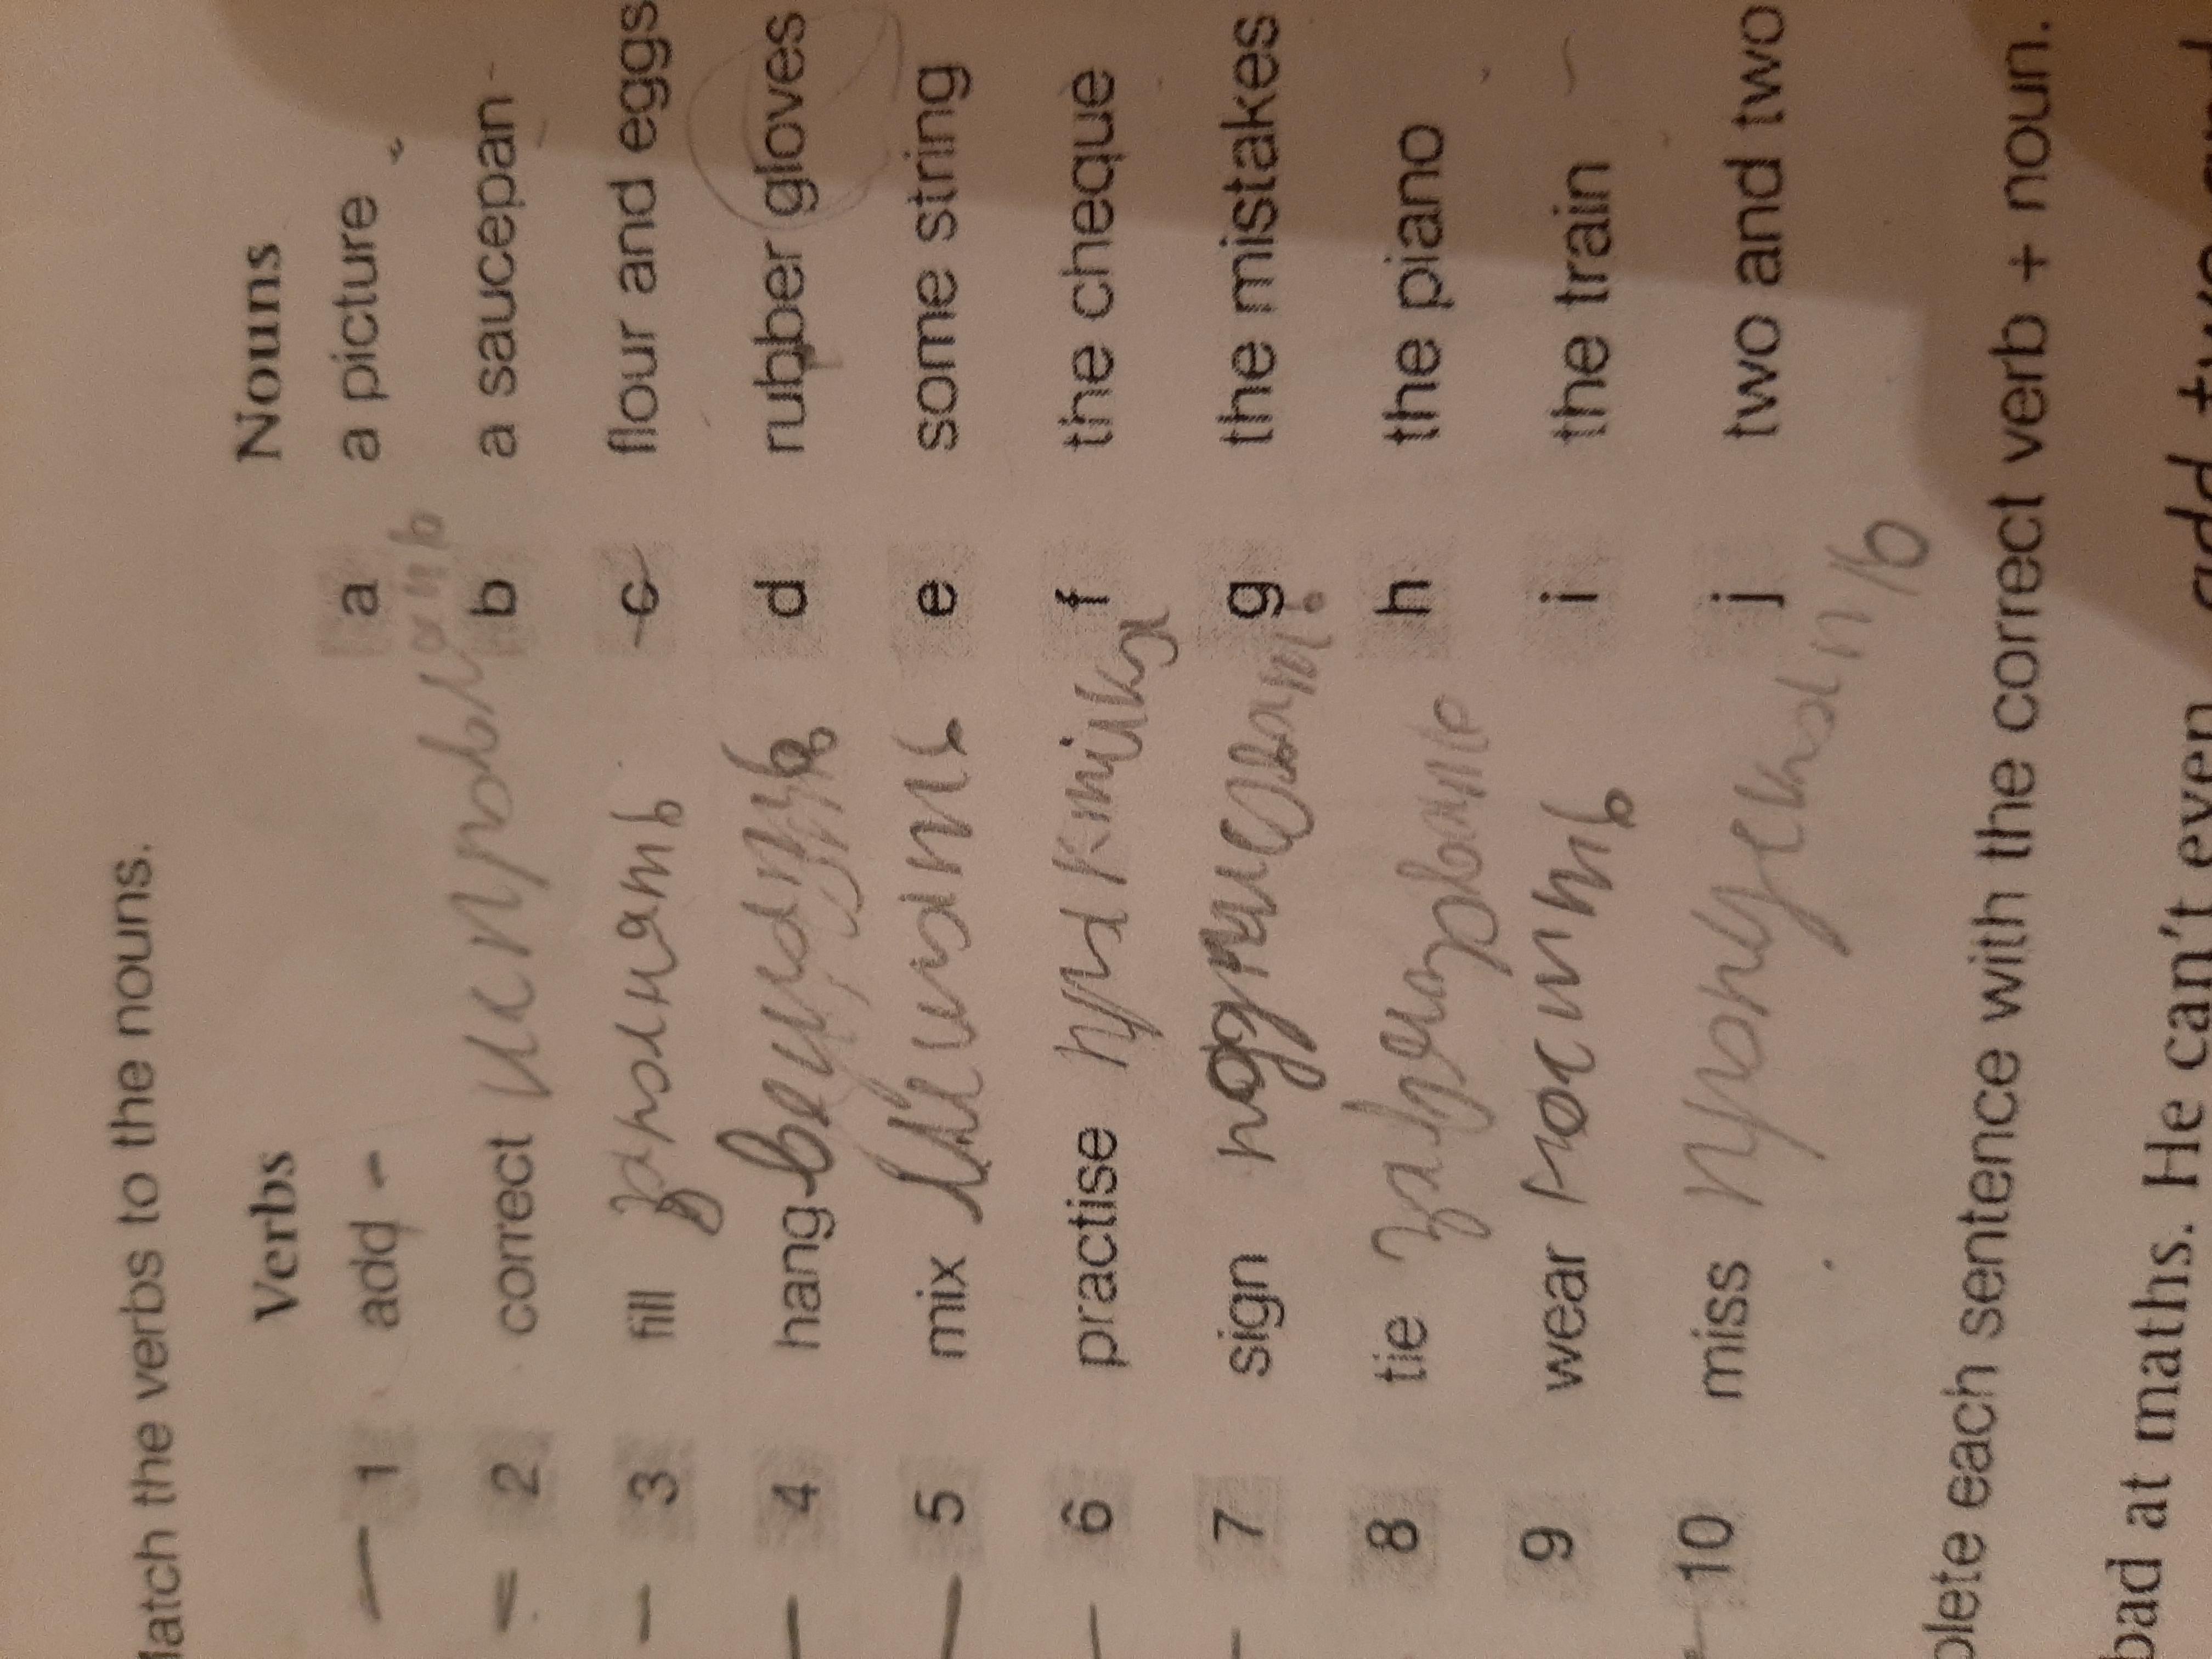 Match the verbs to the nouns.
Verbs Nouns
1 add - a a picture
2 correct исправлять b a saucepan
3 fill заполнить c flour and eggs
4 hang d rubber gloves
5 mix мешать e some string
6 practise практика f the cheque
7 sign подписать g the mistakes
8 tie завязывать h the piano
9 wear носить i the train
10 miss пропускать j two and two
plete each sentence with the correct verb + noun.
bad at maths. He can't even add two and